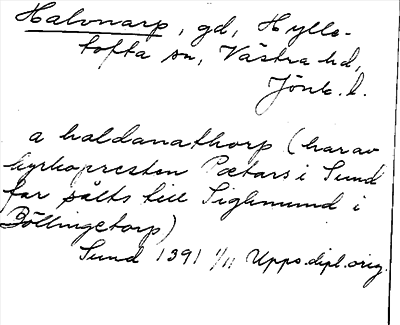 Halvnarp, gd, Hylle-
tofta sn, Västra hd,
Jönk. l.
a haldanathorp (harav
kyrkopresten Pætars i Sund
far sålts till Sighmund i
Böllingetorp)
Sund 1391 1/11 Upps. dipl. orig.